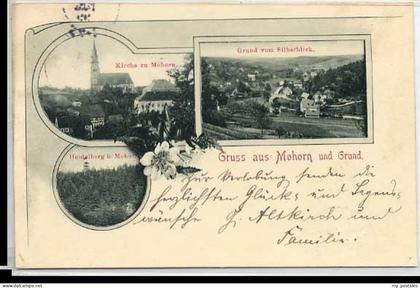 Kirche zu Mohorn.
Grund vom Silberblick.
Heidelberg b. Mohorn
Gruss aus Mohorn und Grund.
Zur Verlobung senden die
herzlichsten Glücks- und Segens-
wünsche G. Altkirch und
Familie.